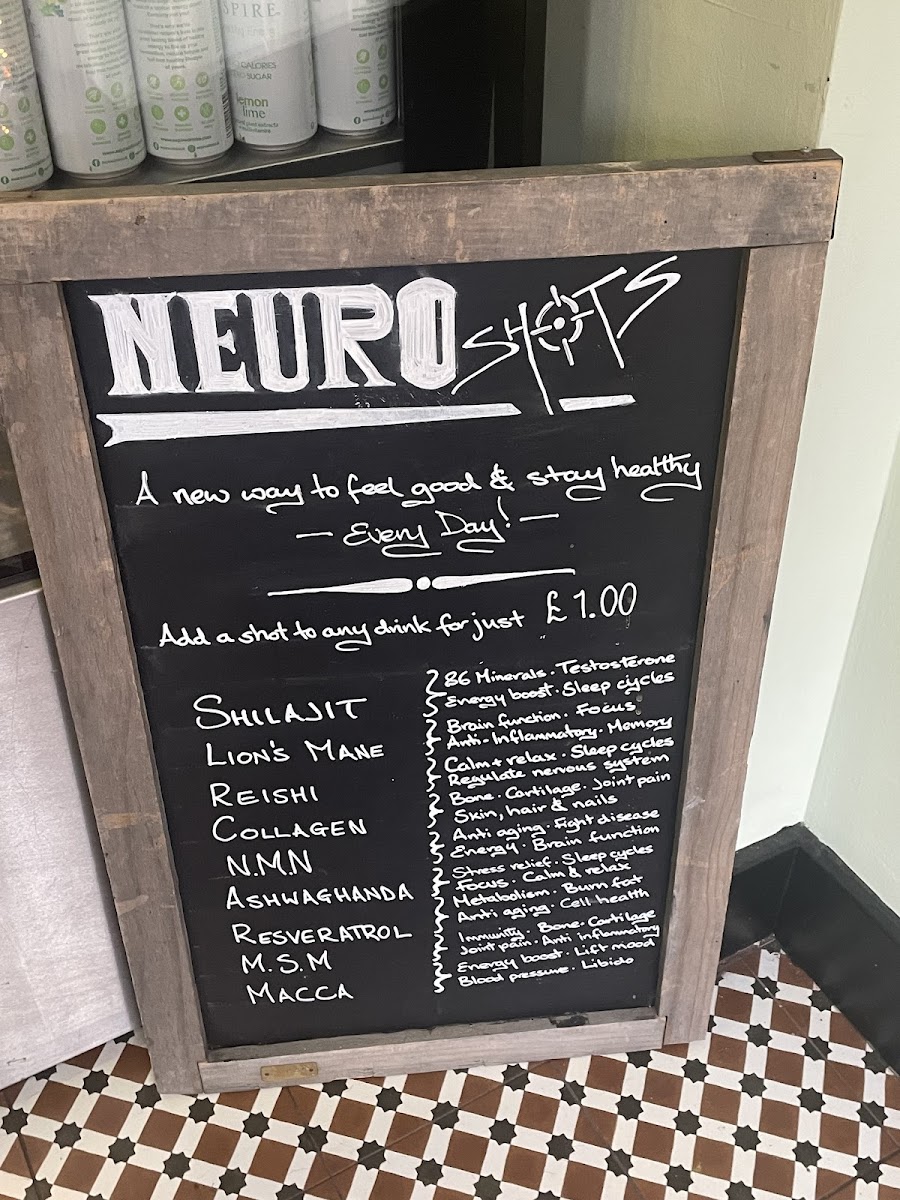 SPIRE
CALORIES
SUGAR
lemon
lime
NEURO SHOTS
A new way to feel good & stay healthy
— Every Day! —
Add a shot to any drink for just £1.00
SHILAJIT
86 Minerals · Testosterone
Energy boost · Sleep cycles
LION'S MANE
Brain function · Focus
Anti-Inflammatory · Memory
REISHI
Calm + relax · Sleep cycles
Regulate nervous system
COLLAGEN
Bone · Cartilage · Joint pain
Skin, hair & nails
N.M.N
Anti aging · Fight disease
Energy · Brain function
ASHWAGHANDA
Stress relief · Sleep cycles
Focus · Calm & relax
RESVERATROL
Metabolism · Burn fat
Anti aging · Cell health
M.S.M
Immunity · Bone · Cartilage
Joint pain · Anti inflammatory
MACCA
Energy boost · Lift mood
Blood pressure · Libido